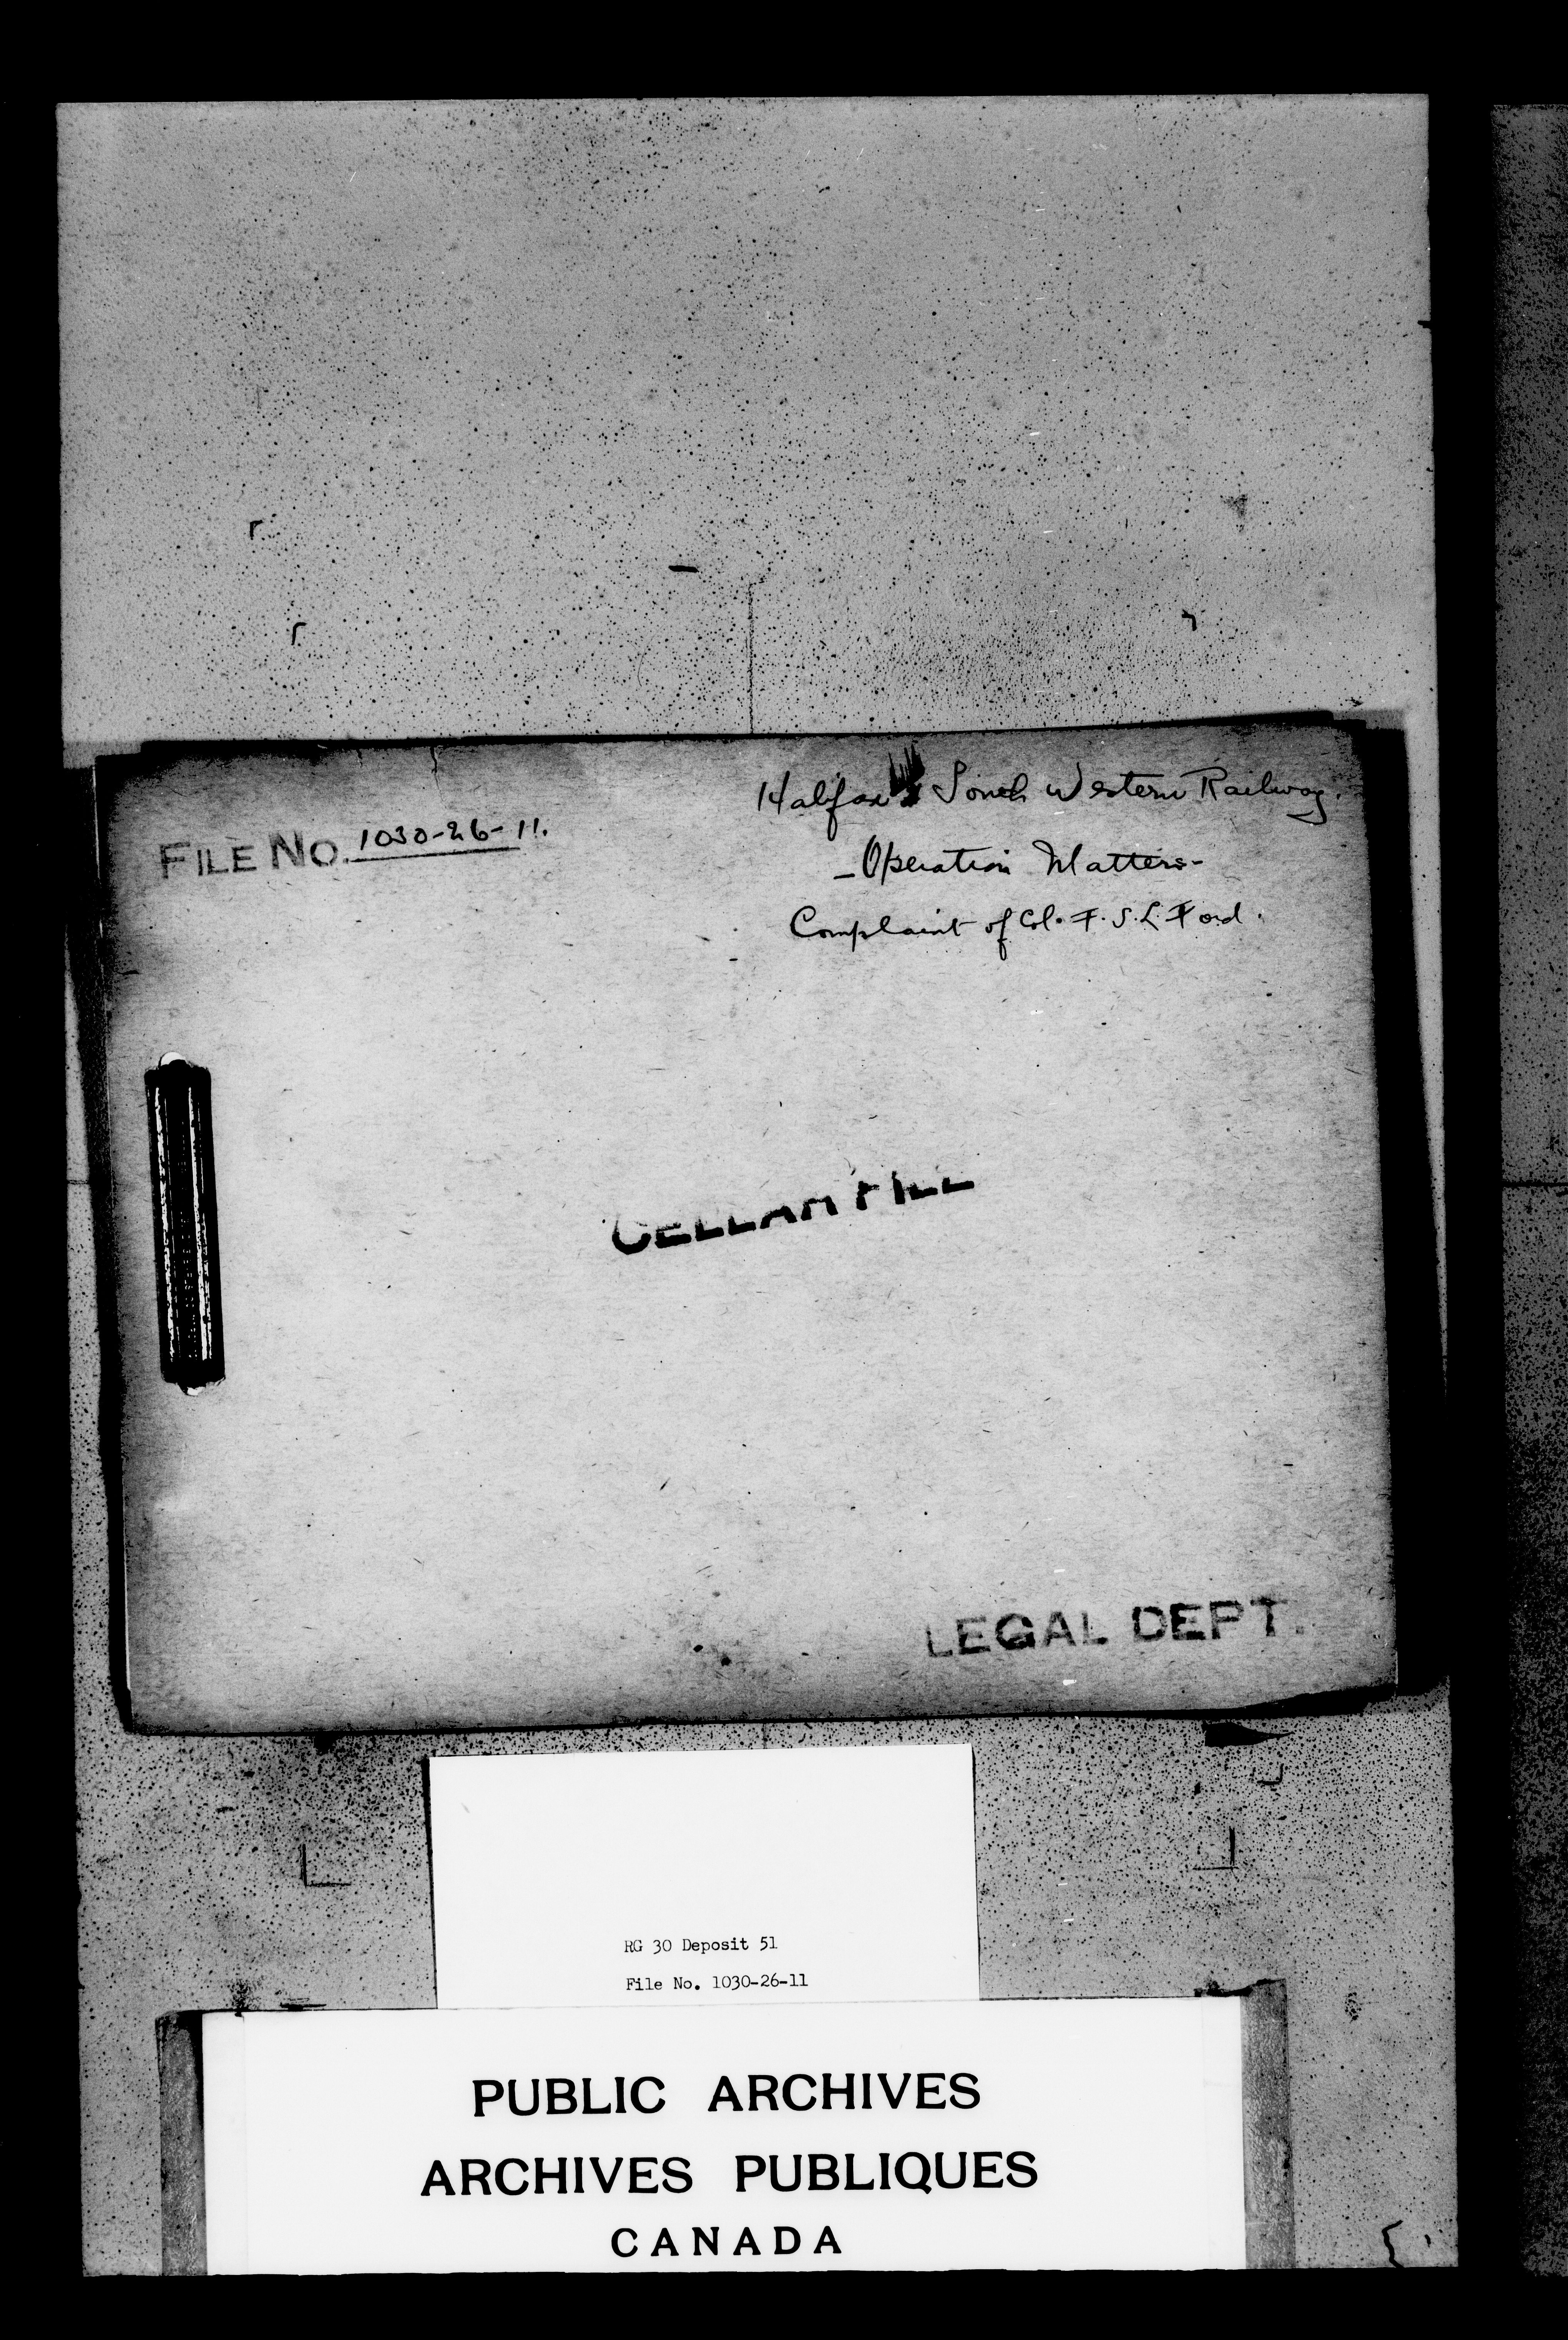 Halifax & South Western Railway.
FILE NO. 1030-26-11.
- Operation Matters -
Complaint of Col. F. S. L. Ford.
CELLAR FILE
LEGAL DEPT.
RG 30 Deposit 51
File No. 1030-26-11
PUBLIC ARCHIVES
ARCHIVES PUBLIQUES
CANADA